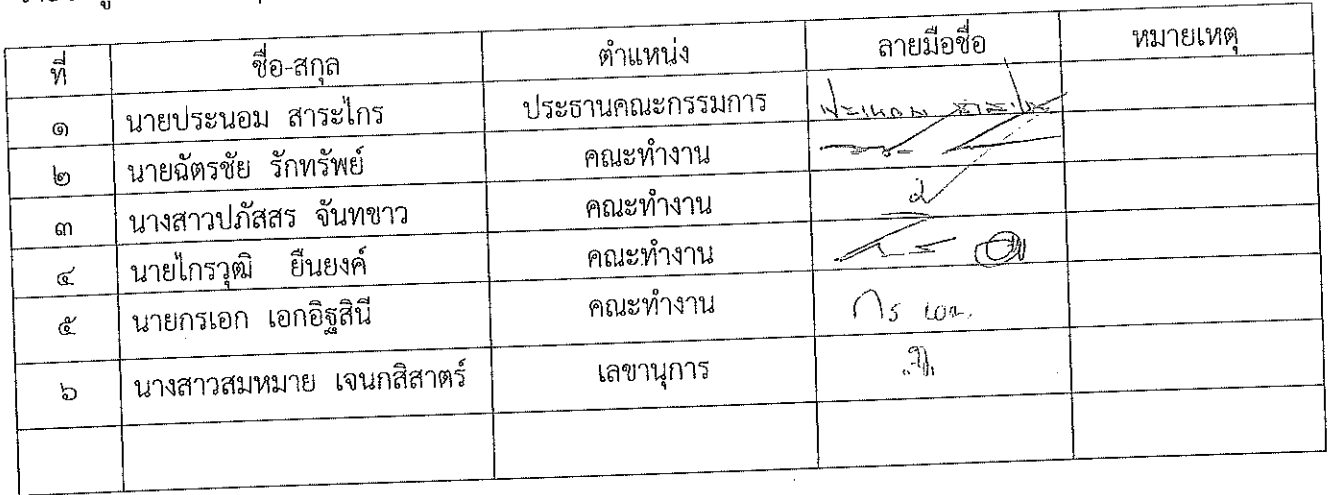 ที่ ชื่อ-สกุล ตำแหน่ง ลายมือชื่อ หมายเหตุ
๑ นายประนอม สาระไกร ประธานคณะกรรมการ
๒ นายฉัตรชัย รักทรัพย์ คณะทำงาน
๓ นางสาวปภัสสร จันทขาว คณะทำงาน
๔ นายไกรวุฒิ ยืนยงค์ คณะทำงาน
๕ นายกรเอก เอกอิฐสินี คณะทำงาน กร เอก.
๖ นางสาวสมหมาย เจนกสิสาตร์ เลขานุการ